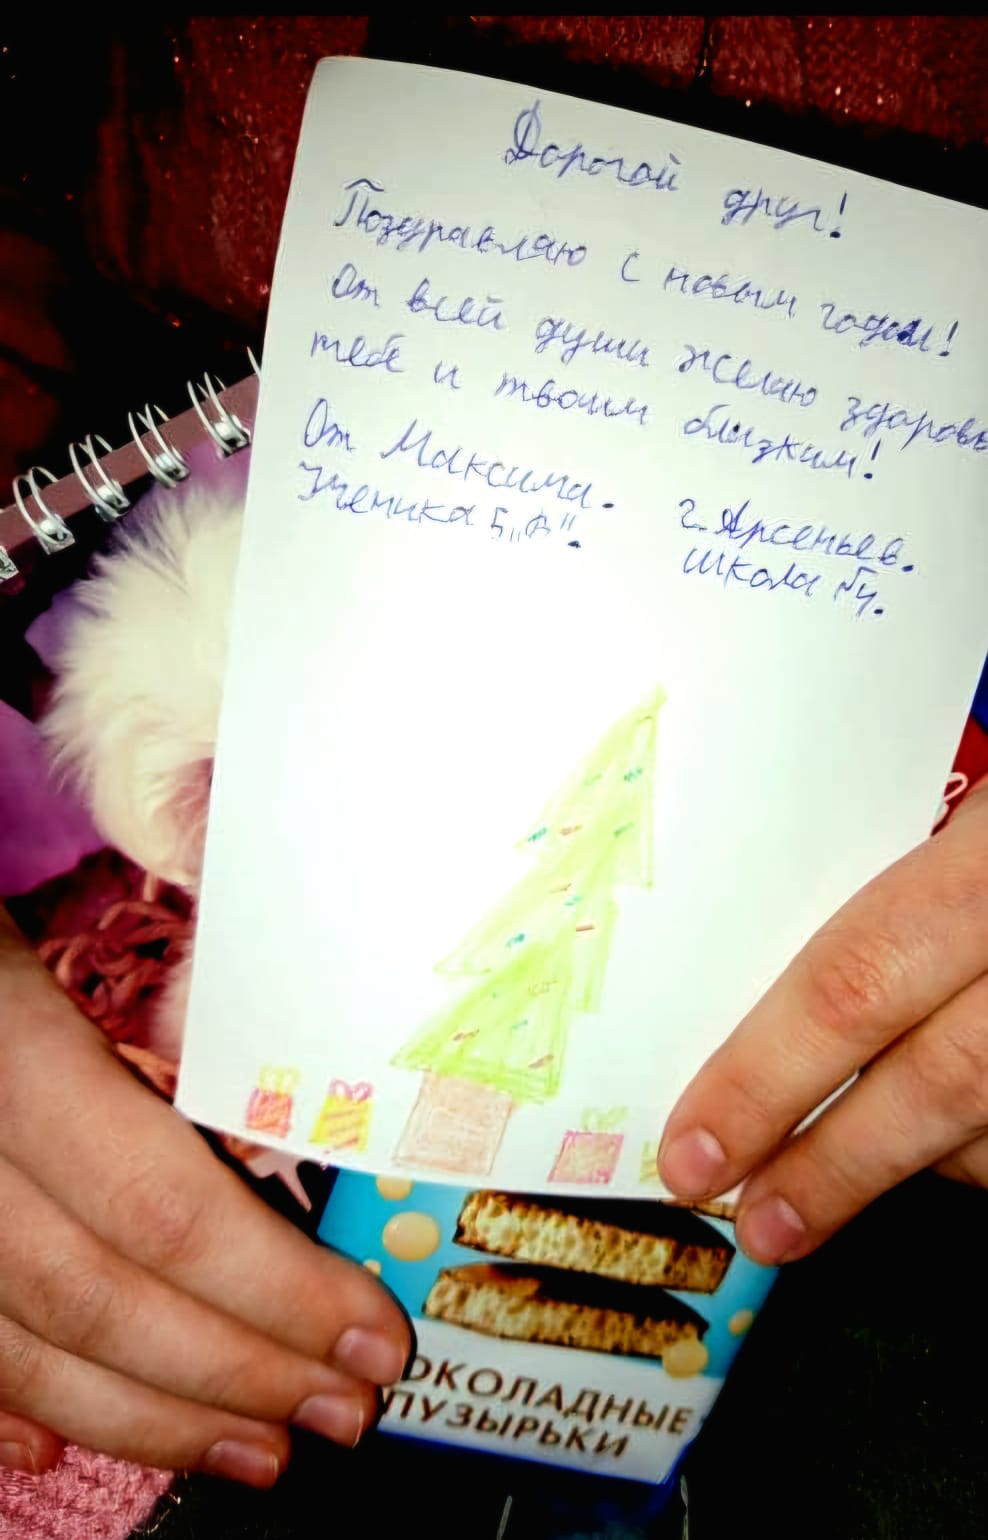 Дорогой друг!
Поздравляю с новым годом!
От всей души желаю здоровь
тебе и твоим близким!
От Максима.
Ученика 5 „В".
г. Арсеньев.
школа №4.
ОКОЛАДНЫЕ
ПУЗЫРЬКИ